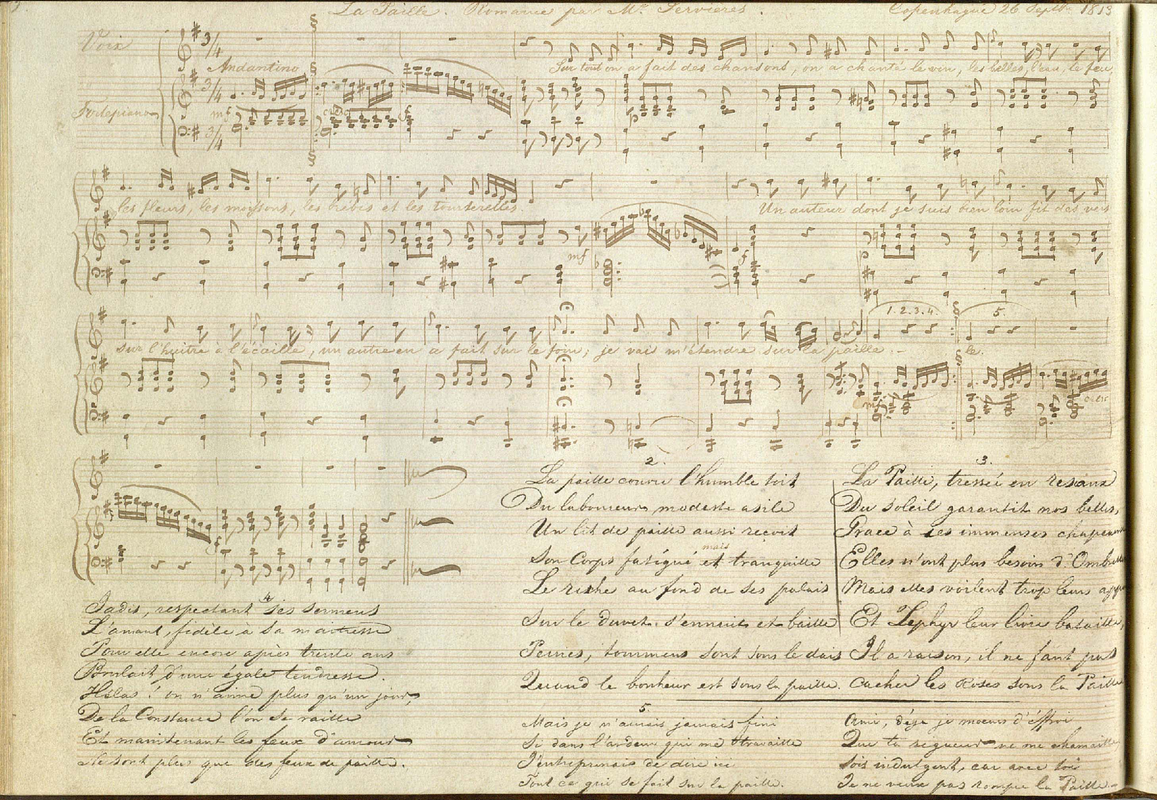 La Paille. Romance par Mr. Servieres. Copenhague 26 Septbr 1813
Voix
Andantino
Sur tout on a fait des chansons, on a chanté le vin, les belles, l'eau, le feu
Fortepiano
mf
les fleurs, les moissons, les brebis et les tourterelles
Un auteur dont je suis bien loin fit des vers
mf
f
1. 2. 3. 4.
5
sur l'huître à l'écaille, un autre en a fait sur le foin; je vai m'étendre sur la paille. le.
mf
2.
La paille couvre l'humble toit
Du laboureur, modeste asile
Un lit de paille aussi reçoit
Son Corps fatigué et mais tranquille
Le riche au fond de ses palais
Sur le duvet, s'ennuie et baille
Peines, tourmens sont sous le dais
Quand le bonheur est sous la paille.
3.
La Paille, tressée en reseaux
Du soleil garantit nos belles,
Grace à ses immenses chapeaux
Elles n'ont plus besoin d'Ombrelles
Mais elles voilent trop leurs
Et Zephyr leur livre bataille,
Il a raison, il ne faut pas
Cacher les Roses sous la Paille
4
Jadis, respectant ses sermens
L'amant, fidèle à sa maitresse
Pour elle encore après trente ans
Brulait d'une égale tendresse.
Hélas! on n'aime plus qu'un jour,
De la Constance l'on se raille
Et maintenant les feux d'amour
Ne sont plus que des feux de paille.
5.
Mais je n'aurais jamais fini
Si dans l'ardeur qui me travaille
J'entreprenais de dire ici
Tout ce qui se fait sur la paille.
Ami, déja je meurs d'effroi
Que ta rigueur ne me chamaille
Sois indulgent, car avec toi
Je ne veux pas rompre la Paille.